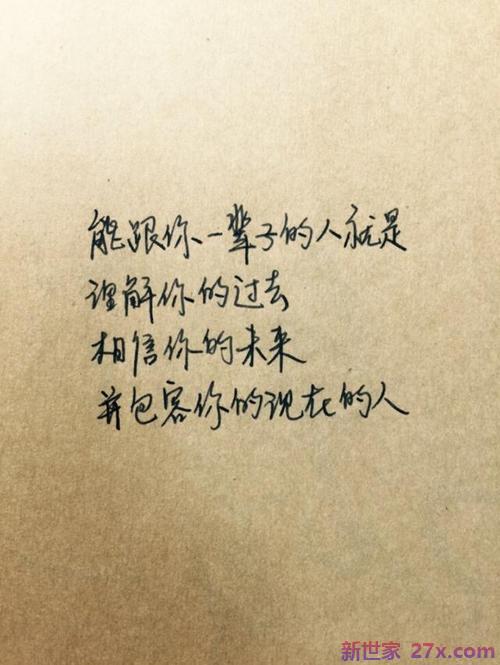 能跟你一辈子的人就是
理解你的过去
相信你的未来
并包容你的现在的人
新世家 27x.com